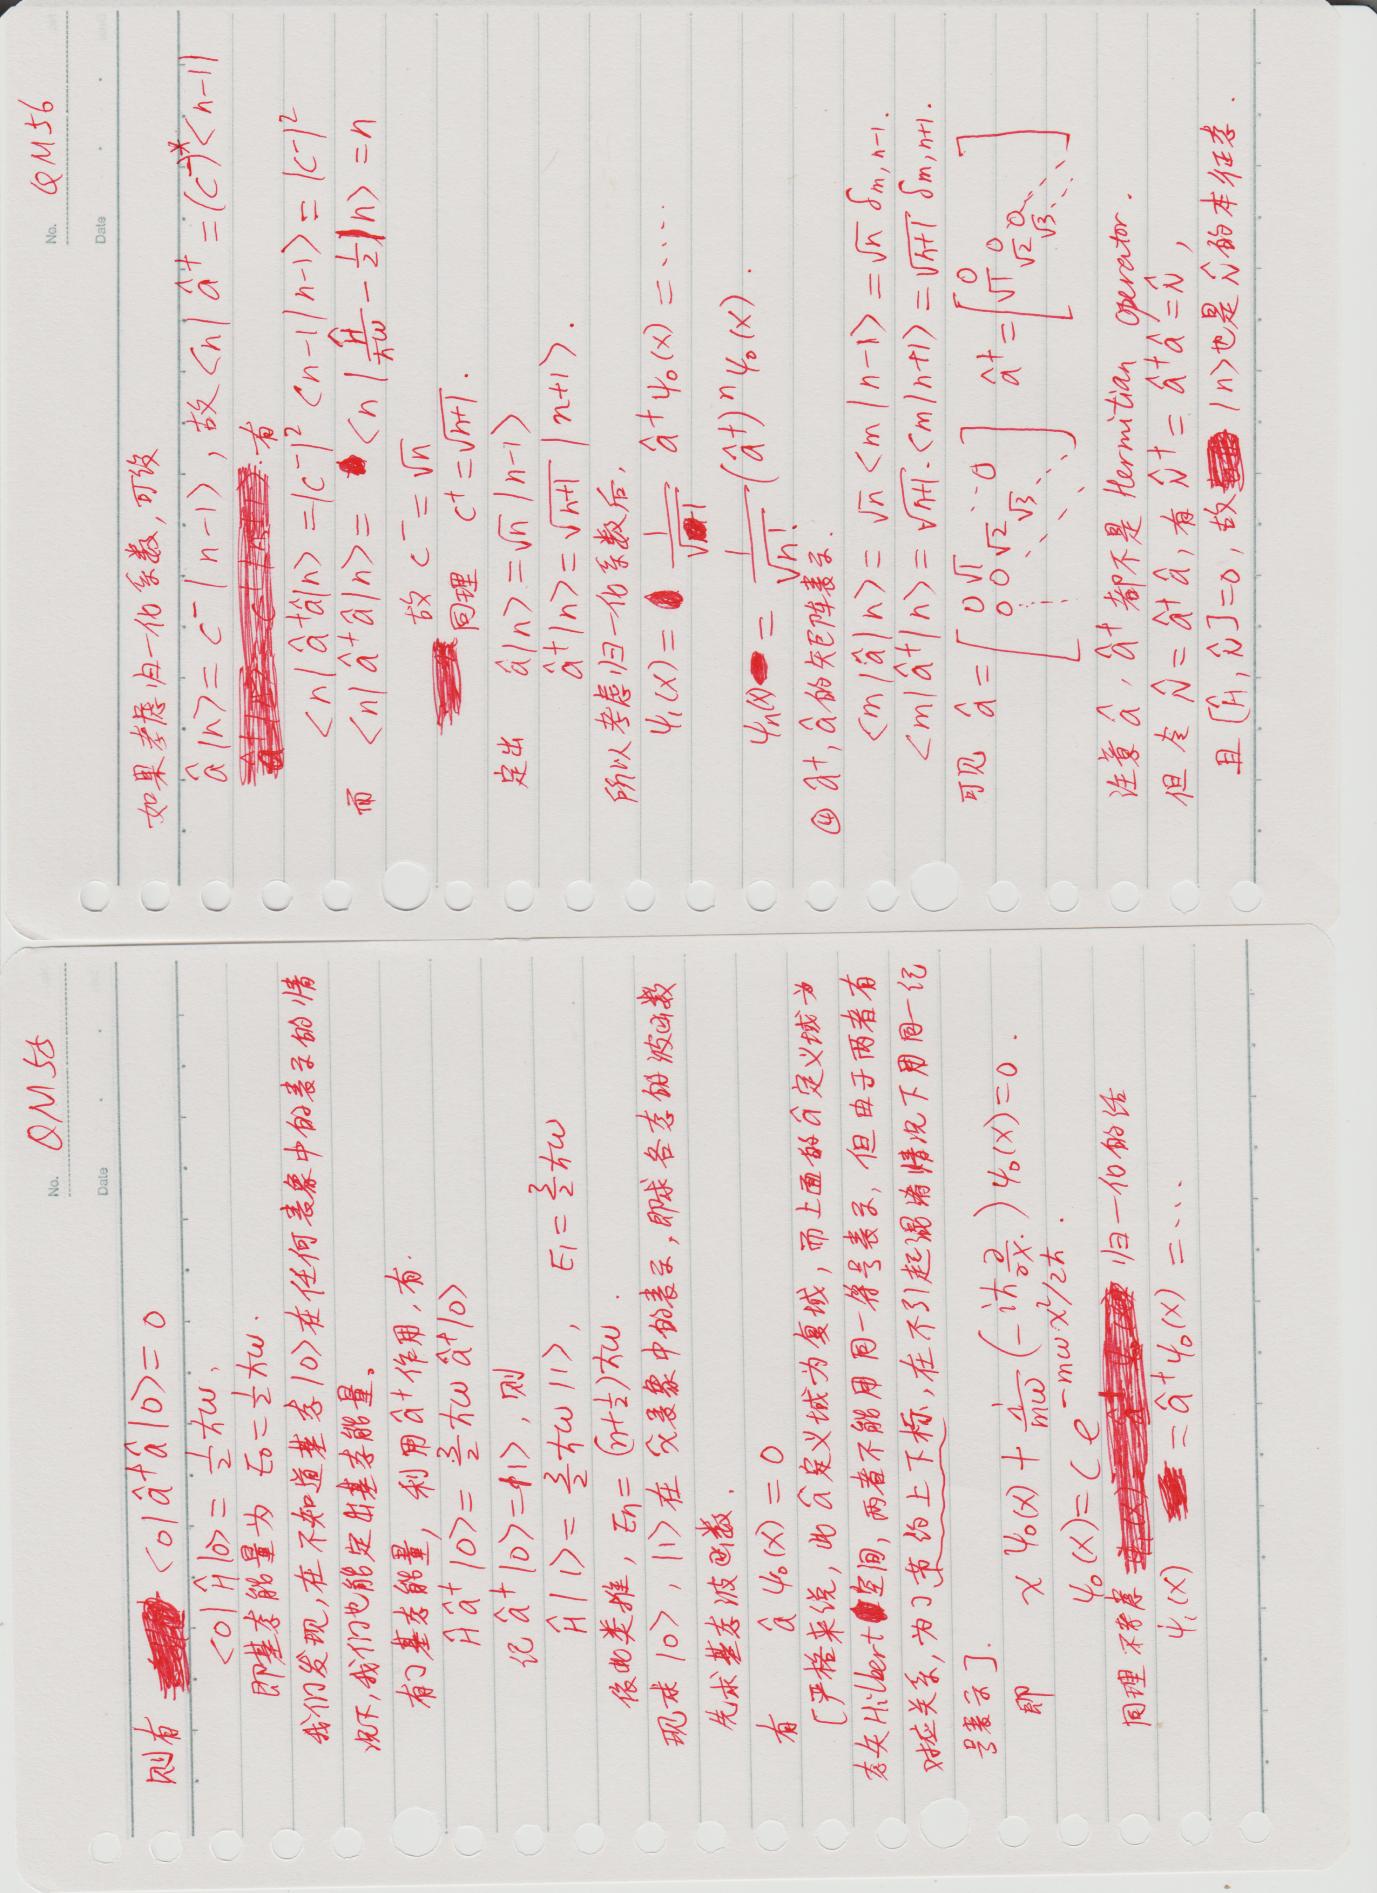 No. QM55
Date
则有 <0|â†â|0> = 0
<0|Ĥ|0> = 1/2 ħω,
即基态能量为 E₀ = 1/2 ħω.
我们发现,在不知道基态|0>在任何表象中的表示的情
况下,我们也能定出基态能量。
有了基态能量, 利用â†作用,有.
Ĥâ†|0> = 3/2 ħω â†|0>
记 â†|0> = |1>, 则
Ĥ|1> = 3/2 ħω|1>, E₁ = 3/2 ħω
依此类推, Eₙ = (n+1/2)ħω.
现求|0>, |1>在 x̂表象中的表示,即求各态的波函数
先求基态波函数.
有 â ψ₀(x) = 0
[严格来说, 此â定义域为复域, 而上面的â定义域为
态矢Hilbert空间, 两者不能用同一符号表示, 但由于两者有
对应关系, 为了节约上下标, 在不引起混淆情况下用同一记
号表示].
即 x ψ₀(x) + i/mω (-iħ ∂/∂x.) ψ₀(x) = 0.
ψ₀(x) = C e^(-mωx²/2ħ).
同理 不考虑 归一化的话
ψ₁(x) = â†ψ₀(x) = ...
No. QM56
Date
如果考虑归一化系数, 可设
â|n> = c⁻|n-1>, 故<n|â† = (c⁻)*<n-1|
有
<n|â†â|n> = |c⁻|² <n-1|n-1> = |c⁻|²
而 <n|â†â|n> = <n|Ĥ/ħω - 1/2|n> = n
故 c⁻ = √n
同理 c⁺ = √(n+1).
定出 â|n> = √n |n-1>
â†|n> = √(n+1) |n+1>.
所以考虑归一化系数后,
ψ₁(x) = 1/√1 â†ψ₀(x) = .....
ψₙ(x) = 1/√n! (â†)ⁿ ψ₀(x).
④ â†, â的矩阵表示.
<m|â|n> = √n <m|n-1> = √n δm,n-1.
<m|â†|n> = √(n+1)·<m|n+1> = √(n+1) δm,n+1.
可见 â = [0 √1 ... 0 0 0 √2 √3 ⋱] â† = [0 √1 0 √2 0 √3 ⋱]
注意 â, â† 都不是 Hermitian operator.
但令 N̂ = â†â, 有 N̂† = â†â = N̂,
且 [Ĥ, N̂] = 0, 故 |n>也是N̂的本征态.